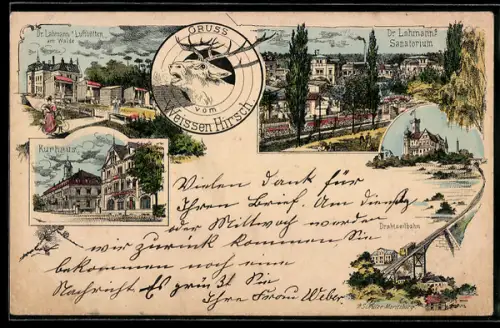 Dr. Lahmann's Lufthütten
am Walde
GRUSS
vom
Weissen Hirsch.
Dr. Lahmann's
Sanatorium
Kurhaus
Drahtseilbahn
Vielen dank für
Ihren Brief. Am Dienstg
oder Mittwoch werden
wir zurück kommen Sie
bekommen noch eine
Nachricht Es grüßt Sie
Ihre Frau Weber